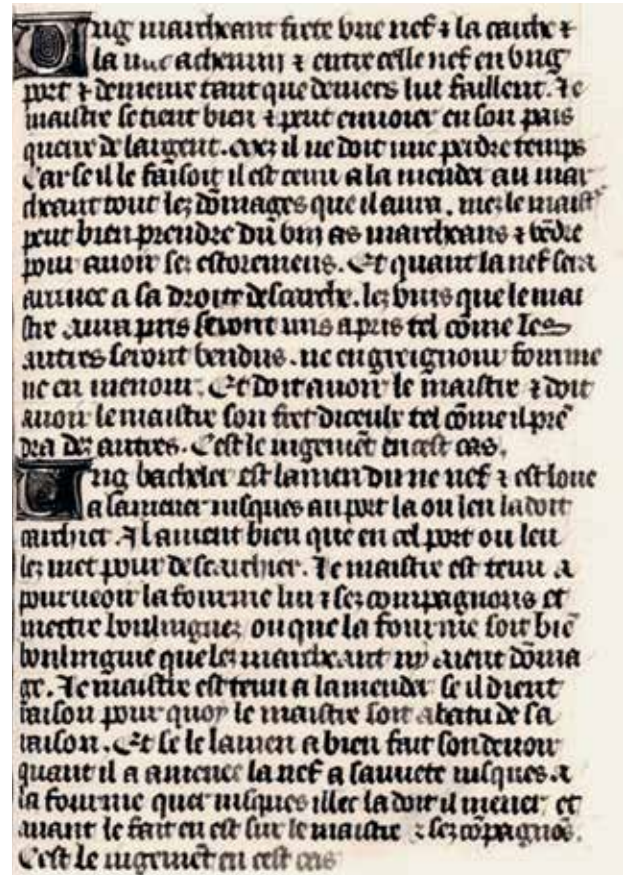 Ung marcheant frete une nef & la carche &
la met a chemin & entre celle nef en ung
port & demeure tant que deniers lui faillent. Le
maistre se tient bien & peut envoier en son pais
querir de largent. mes il ne doit mie perdre temps
Car se il le faisoit il est tenu a lamender au mar
cheant tout lez dōmages que il aura. mez le maistre
peut bien prendre du vin as marcheans & vēdre
pour avoir sez estoremens. Et quant la nef sera
arrivee a sa droite descarche. lez vins que le mai
stre aura pris seront mis a pris tel cōme les
autres seront vendus. ne en greignour somme
ne en menour. Et doit avoir le maistre & doit
avoir le maistre son fret diceulx tel cōme il prē
dra dez autres. Cest le iugemēt en cest cas.
Ung bacheler est lamen dune nef & est loue
a lamener iusques au port la ou len la doit
carchier. Il avient bien que en cel port ou len
lez met pour descarchier. Le maistre est tenu a
pourveoir la fourme lui & sez compagnons et
mettre boulingues ou que la fourme soit biē
boulinguie que lez marcheant ny aient dōma
ge. Le maistre est tenu a lamender se il dient
raison pour quoy le maistre soit abatu de sa
raison. Et se le lamen a bien fait son devoir
quant il a amence la nef a sauvete iusques a
la fourme quer iusques illec la doit il mener et
avant le fait en est sur le maistre & sez cōpagnōs.
Cest le iugemēt en cest cas